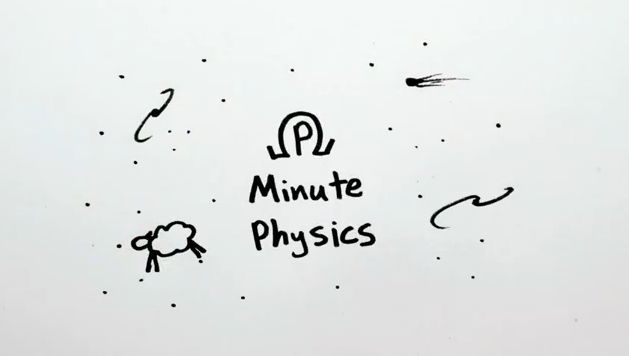 P
Minute
Physics